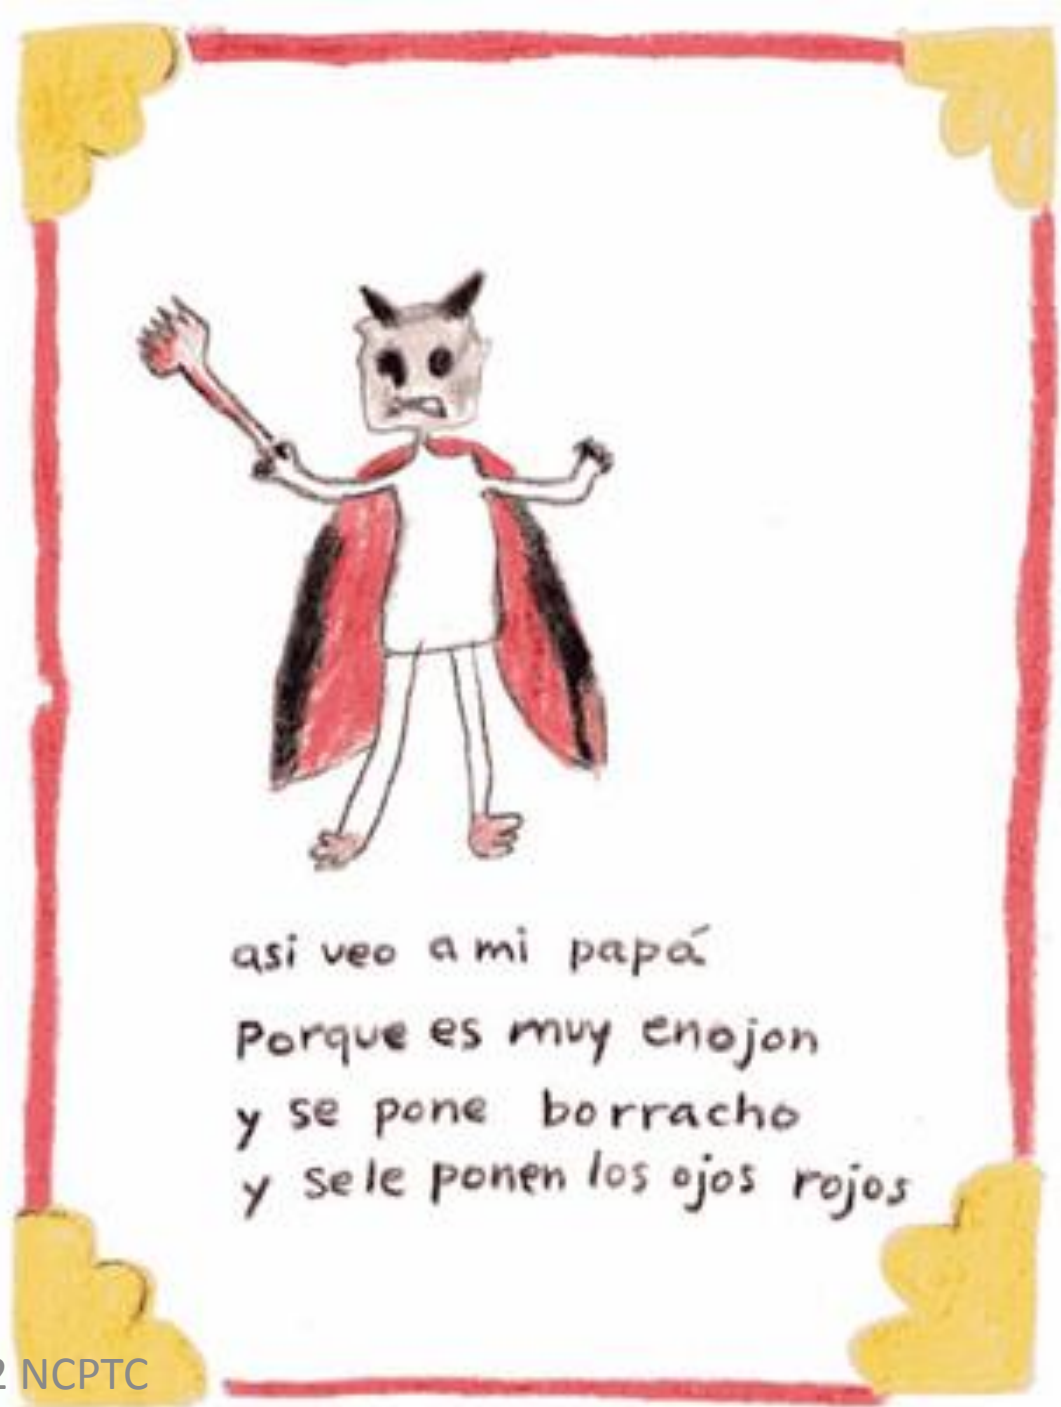 asi veo a mi papá
Porque es muy enojon
y se pone borracho
y sele ponen los ojos rojos
2 NCPTC